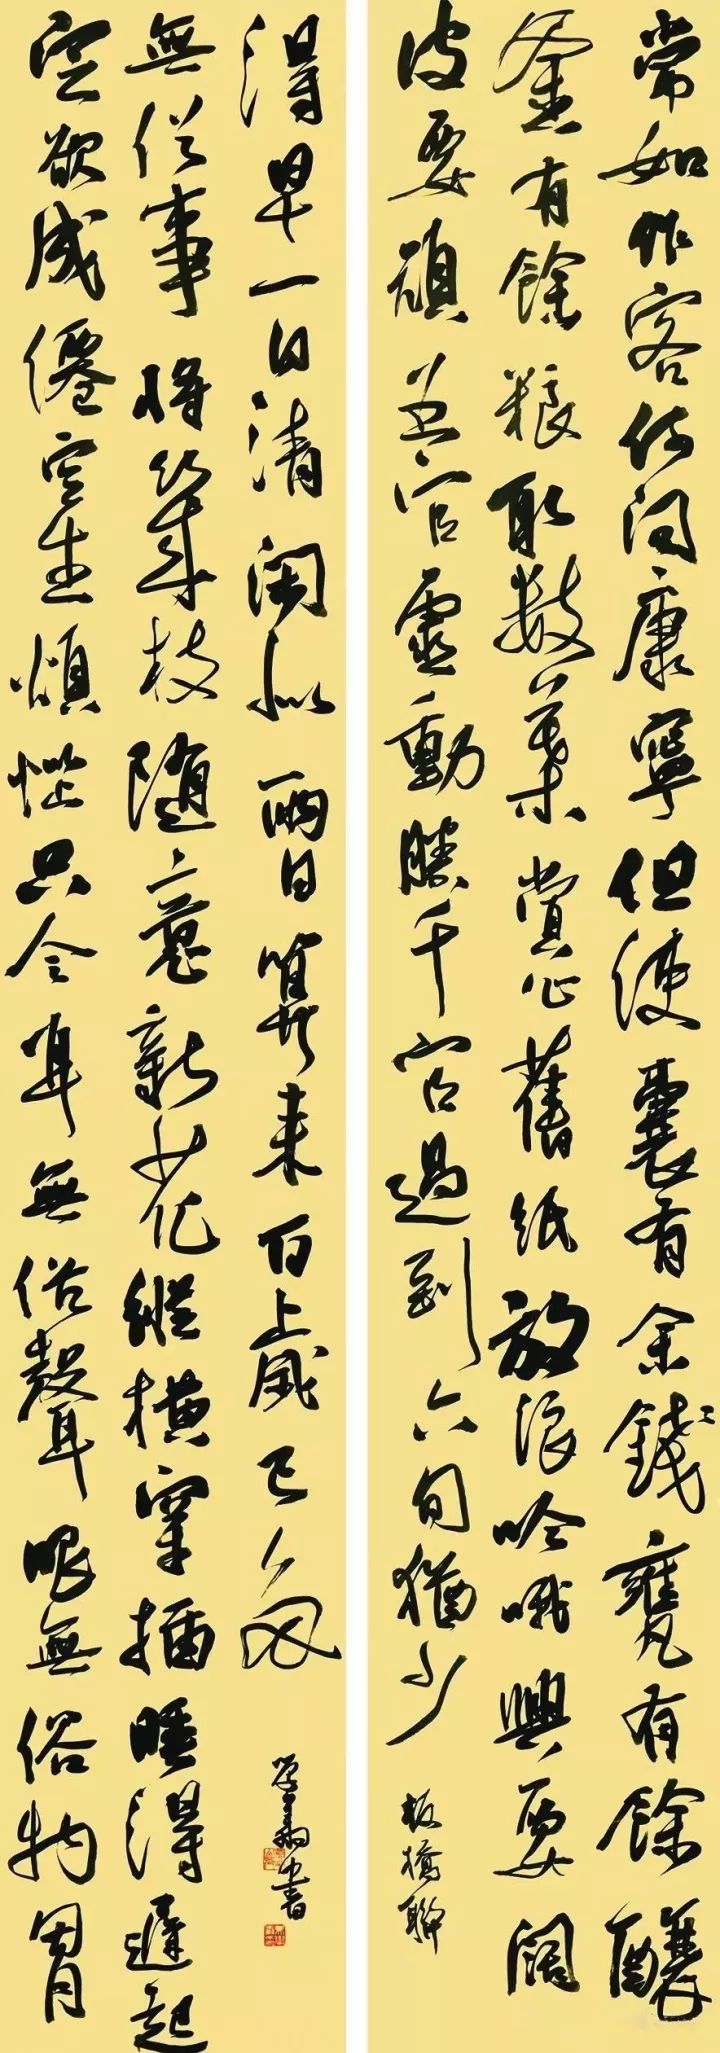 常如作客何问康寧但使囊有余錢甕有餘釀
釜有餘粮取數葉赏心舊紙放浪吟哦興要闊
皮要頑五官靈動勝千官過到六旬猶少
板橋聯
定欲成僊空生煩惱只令耳無俗聲眼無俗物胃
無俗事將幾枝随意新花縱横穿插睡得遲起
得早一日清閑似兩日算来百歲已多